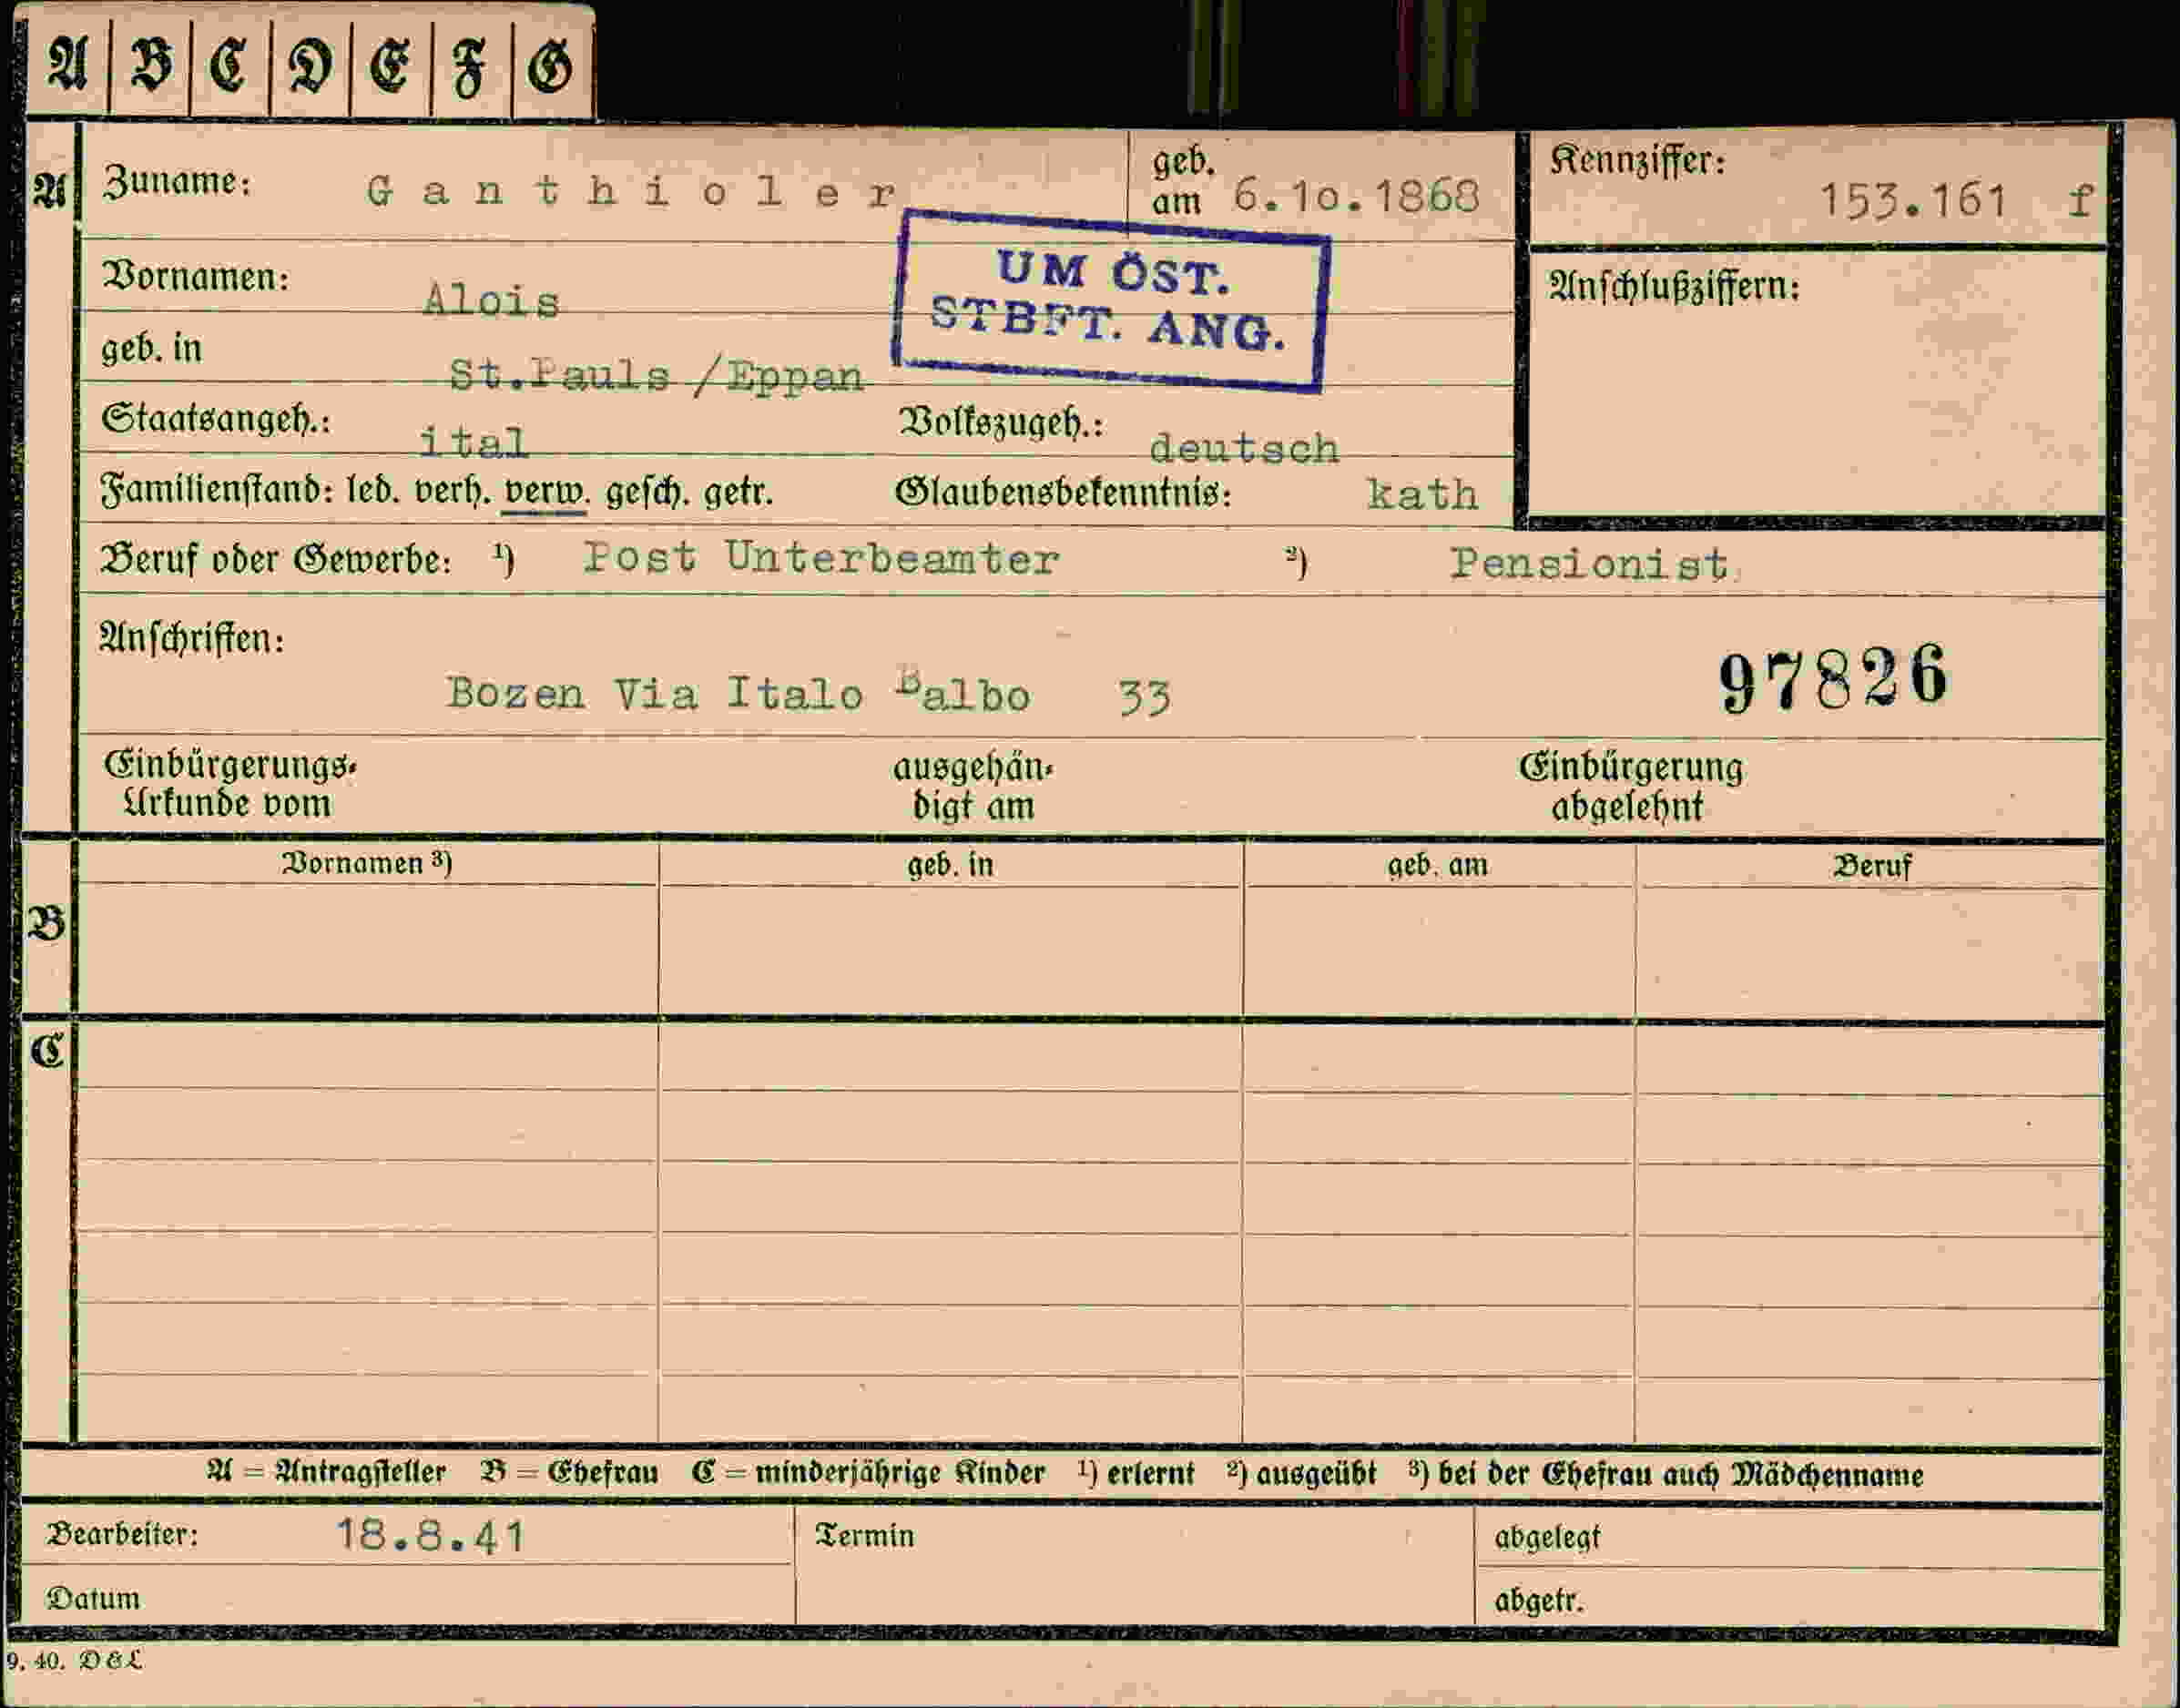 A B C D E F G
A Zuname: Ganthioler geb. am 6.10.1868 Kennziffer: 153.161 f
Vornamen: Alois
UM ÖST.
STBFT. ANG.
Anschlußziffern:
geb. in St.Pauls /Eppan
Staatsangeh.: ital Volkszugeh.: deutsch
Familienstand: led. verh. verw. gesch. getr. Glaubensbekenntnis: kath
Beruf oder Gewerbe: 1) Post Unterbeamter 2) Pensionist
Anschriften:
Bozen Via Italo Balbo 33 97826
Einbürgerungs-Urkunde vom ausgehändigt am Einbürgerung abgelehnt
Vornamen 3) geb. in geb. am Beruf
B
C
A = Antragsteller B = Ehefrau C = minderjährige Kinder 1) erlernt 2) ausgeübt 3) bei der Ehefrau auch Mädchenname
Bearbeiter: 18.8.41 Termin abgelegt
Datum abgetr.
9. 40. D&L